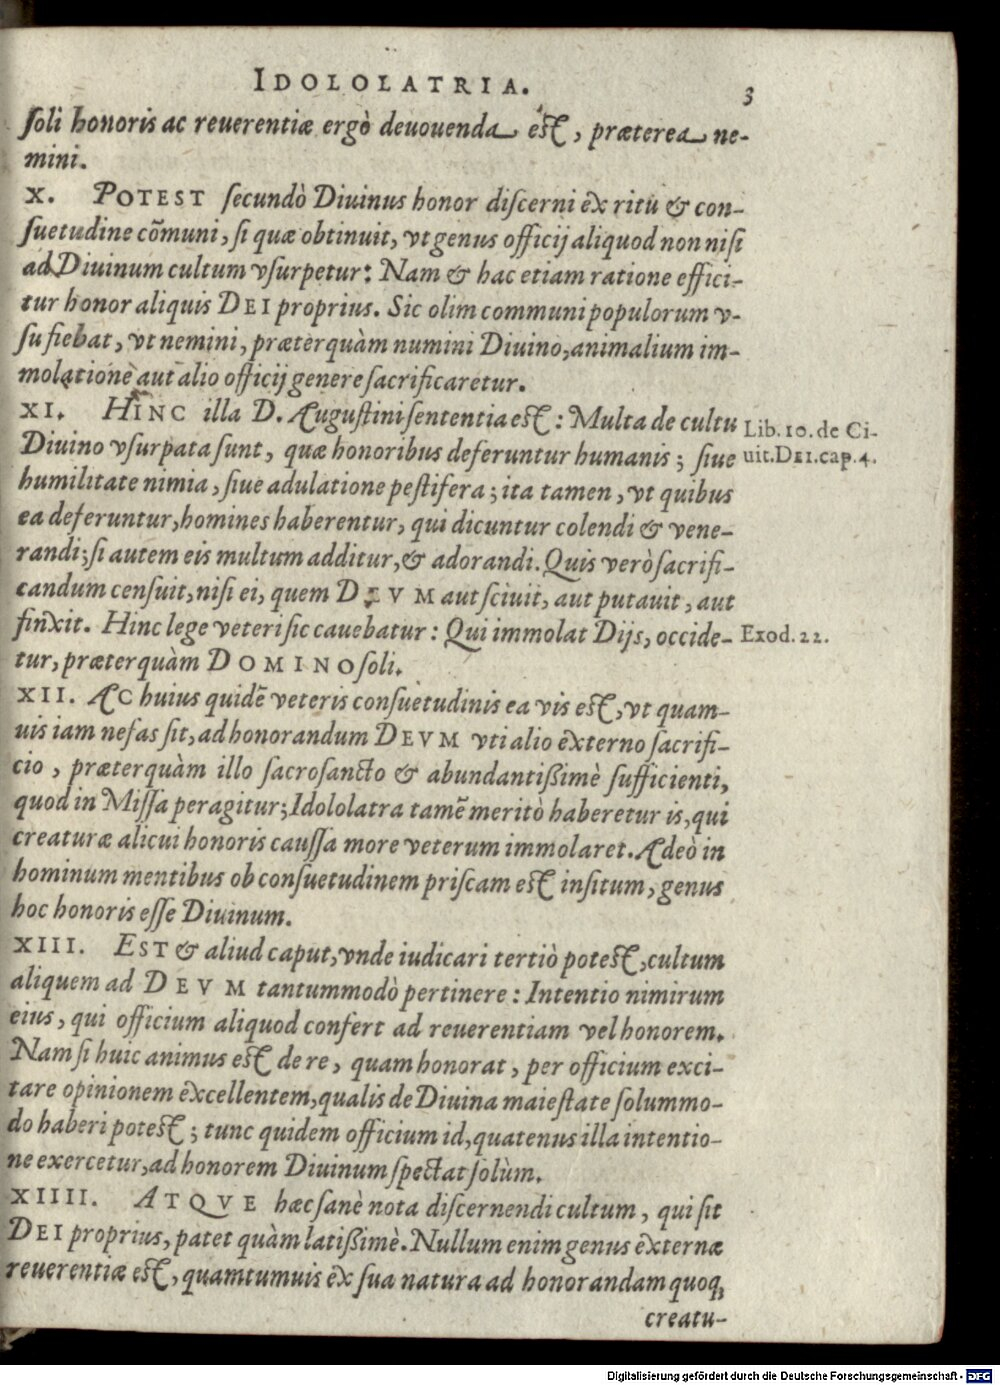 IDOLOLATRIA. 3
soli honoris ac reuerentiæ ergò deuouenda est, præterea ne-
mini.
X. POTEST secundò Diuinus honor discerni ex ritu & con-
suetudine cōmuni, si quæ obtinuit, vt genus officij aliquod non nisi
ad Diuinum cultum vsurpetur: Nam & hac etiam ratione effici-
tur honor aliquis DEI proprius. Sic olim communi populorum v-
su fiebat, vt nemini, præterquàm numini Diuino, animalium im-
molatione aut alio officij genere sacrificaretur.
XI. HINC illa D. Augustini sententia est: Multa de cultu
Diuino vsurpata sunt, quæ honoribus deferuntur humanis; siue
humilitate nimia, siue adulatione pestifera; ita tamen, vt quibus
ea deferuntur, homines haberentur, qui dicuntur colendi & vene-
randi; si autem eis multum additur, & adorandi. Quis verò sacrifi-
candum censuit, nisi ei, quem DEVM aut sciuit, aut putauit, aut
finxit. Hinc lege veteri sic cauebatur: Qui immolat Dijs, occide-
tur, præterquàm DOMINO soli.
Lib. 10. de Ci-
uit. DEI. cap. 4.
Exod. 22.
XII. AC huius quidē veteris consuetudinis ea vis est, vt quam-
uis iam nefas sit, ad honorandum DEVM vti alio externo sacrifi-
cio, præterquàm illo sacrosancto & abundantißimè sufficienti,
quod in Missa peragitur; Idololatra tamē meritò haberetur is, qui
creaturæ alicui honoris caussa more veterum immolaret. Adeò in
hominum mentibus ob consuetudinem priscam est insitum, genus
hoc honoris esse Diuinum.
XIII. EST & aliud caput, vnde iudicari tertiò potest, cultum
aliquem ad DEVM tantummodò pertinere: Intentio nimirum
eius, qui officium aliquod confert ad reuerentiam vel honorem.
Nam si huic animus est de re, quam honorat, per officium exci-
tare opinionem excellentem, qualis de Diuina maiestate solummo-
do haberi potest; tunc quidem officium id, quatenus illa intentio-
ne exercetur, ad honorem Diuinum spectat solùm.
XIIII. ATQVE hæc sanè nota discernendi cultum, qui sit
DEI proprius, patet quàm latißimè. Nullum enim genus externæ
reuerentiæ est, quamtumuis ex sua natura ad honorandam quoq;
creatu-
Digitalisierung gefördert durch die Deutsche Forschungsgemeinschaft - DFG